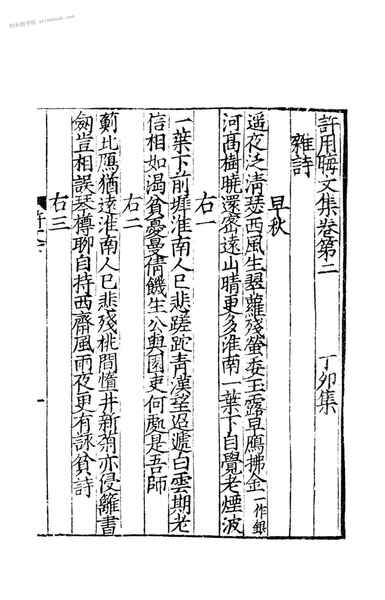 許用晦文集卷第二 丁卯集
雜詩
早秋
遥夜泛清瑟西風生翠蘿殘螢委玉露早鴈拂金一作銀
河髙樹曉還宻逺山晴更多淮南一葉下自覺老煙波
右一
一葉下前墀淮南人已悲蹉跎青漢望迢遞白雲期老
信相如渴貧憂曼倩饑生公與園吏何處是吾師
右二
薊北鴈猶逺淮南人已悲殘桃間墮井新菊亦侵籬書
劒豈相誤琴樽聊自持西齋風雨夜更有詠貧詩
右三